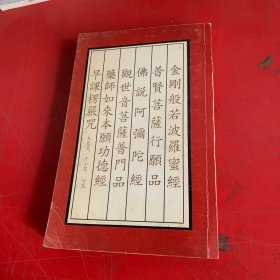 金剛般若波羅蜜經
普賢菩薩行願品
佛說阿彌陀經
觀世音菩薩普門品
藥師如來本願功德經
早課楞嚴咒